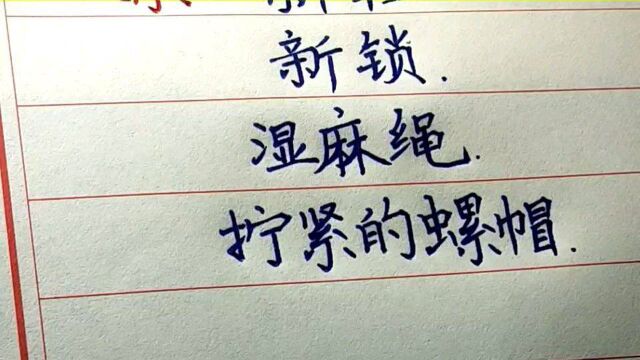 新锁.
湿麻绳.
拧紧的螺帽.